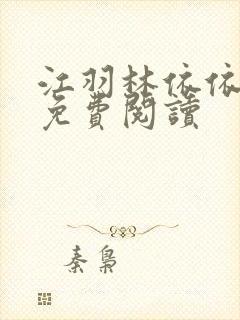 江羽林依依
免費閱讀
秦梟